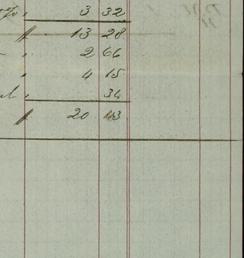 3 32
13 28
2 66
4 15
34
20 43